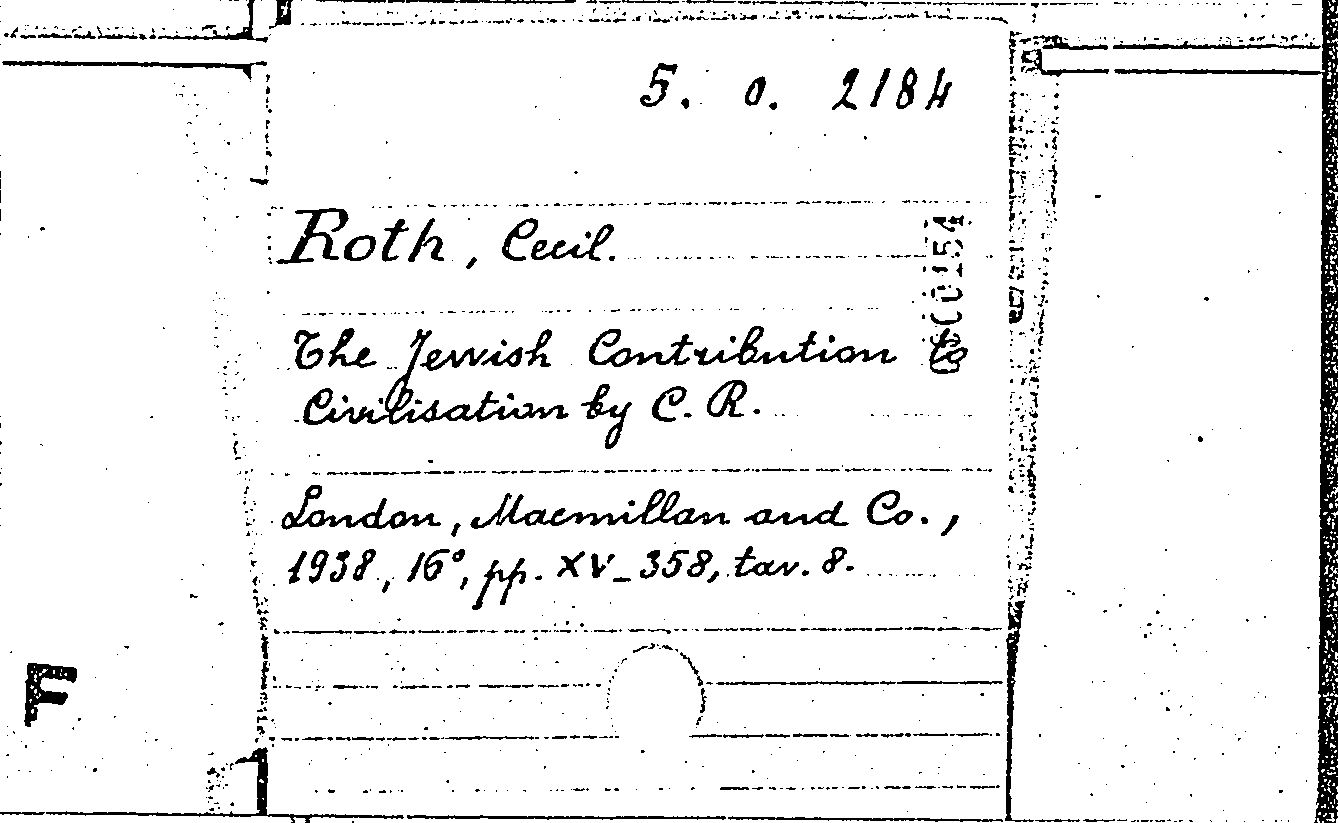 5. o. 2184
Roth, Cecil.
000154
The Jewish Contribution to
Civilisation by C. R.
London, Macmillan and Co.,
1938, 16°, pp. XV_358, tav. 8.
F